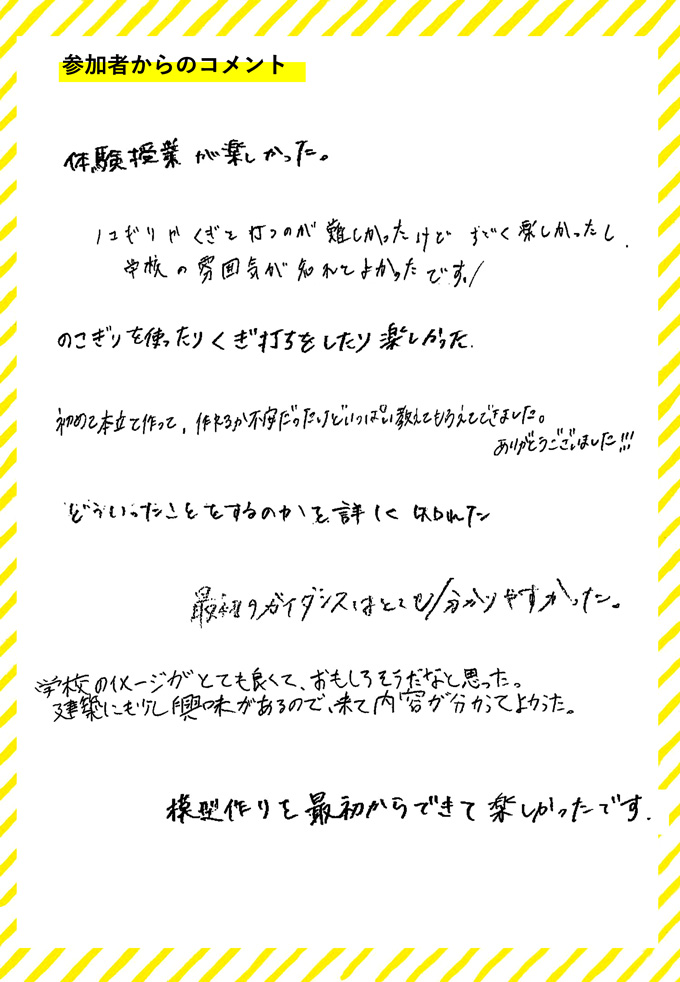 参加者からのコメント
体験授業が楽しかった。
ノコギリやくぎを打つのが難しかったけどすごく楽しかったし、
学校の雰囲気が知れてよかったです!
のこぎりを使ったりくぎ打ちをしたり楽しかった.
初めて本立て作って、作れるか不安だったけどいっぱい教えてもらえてできました。
ありがとうございました!!!
どういったことをするのかを詳しく知れた
最初のガイダンスはとても分かりやすかった。
学校のイメージがとても良くて、おもしろそうだなと思った。
建築にも少し興味があるので、来て内容が分かってよかった。
模型作りを最初からできて楽しかったです.